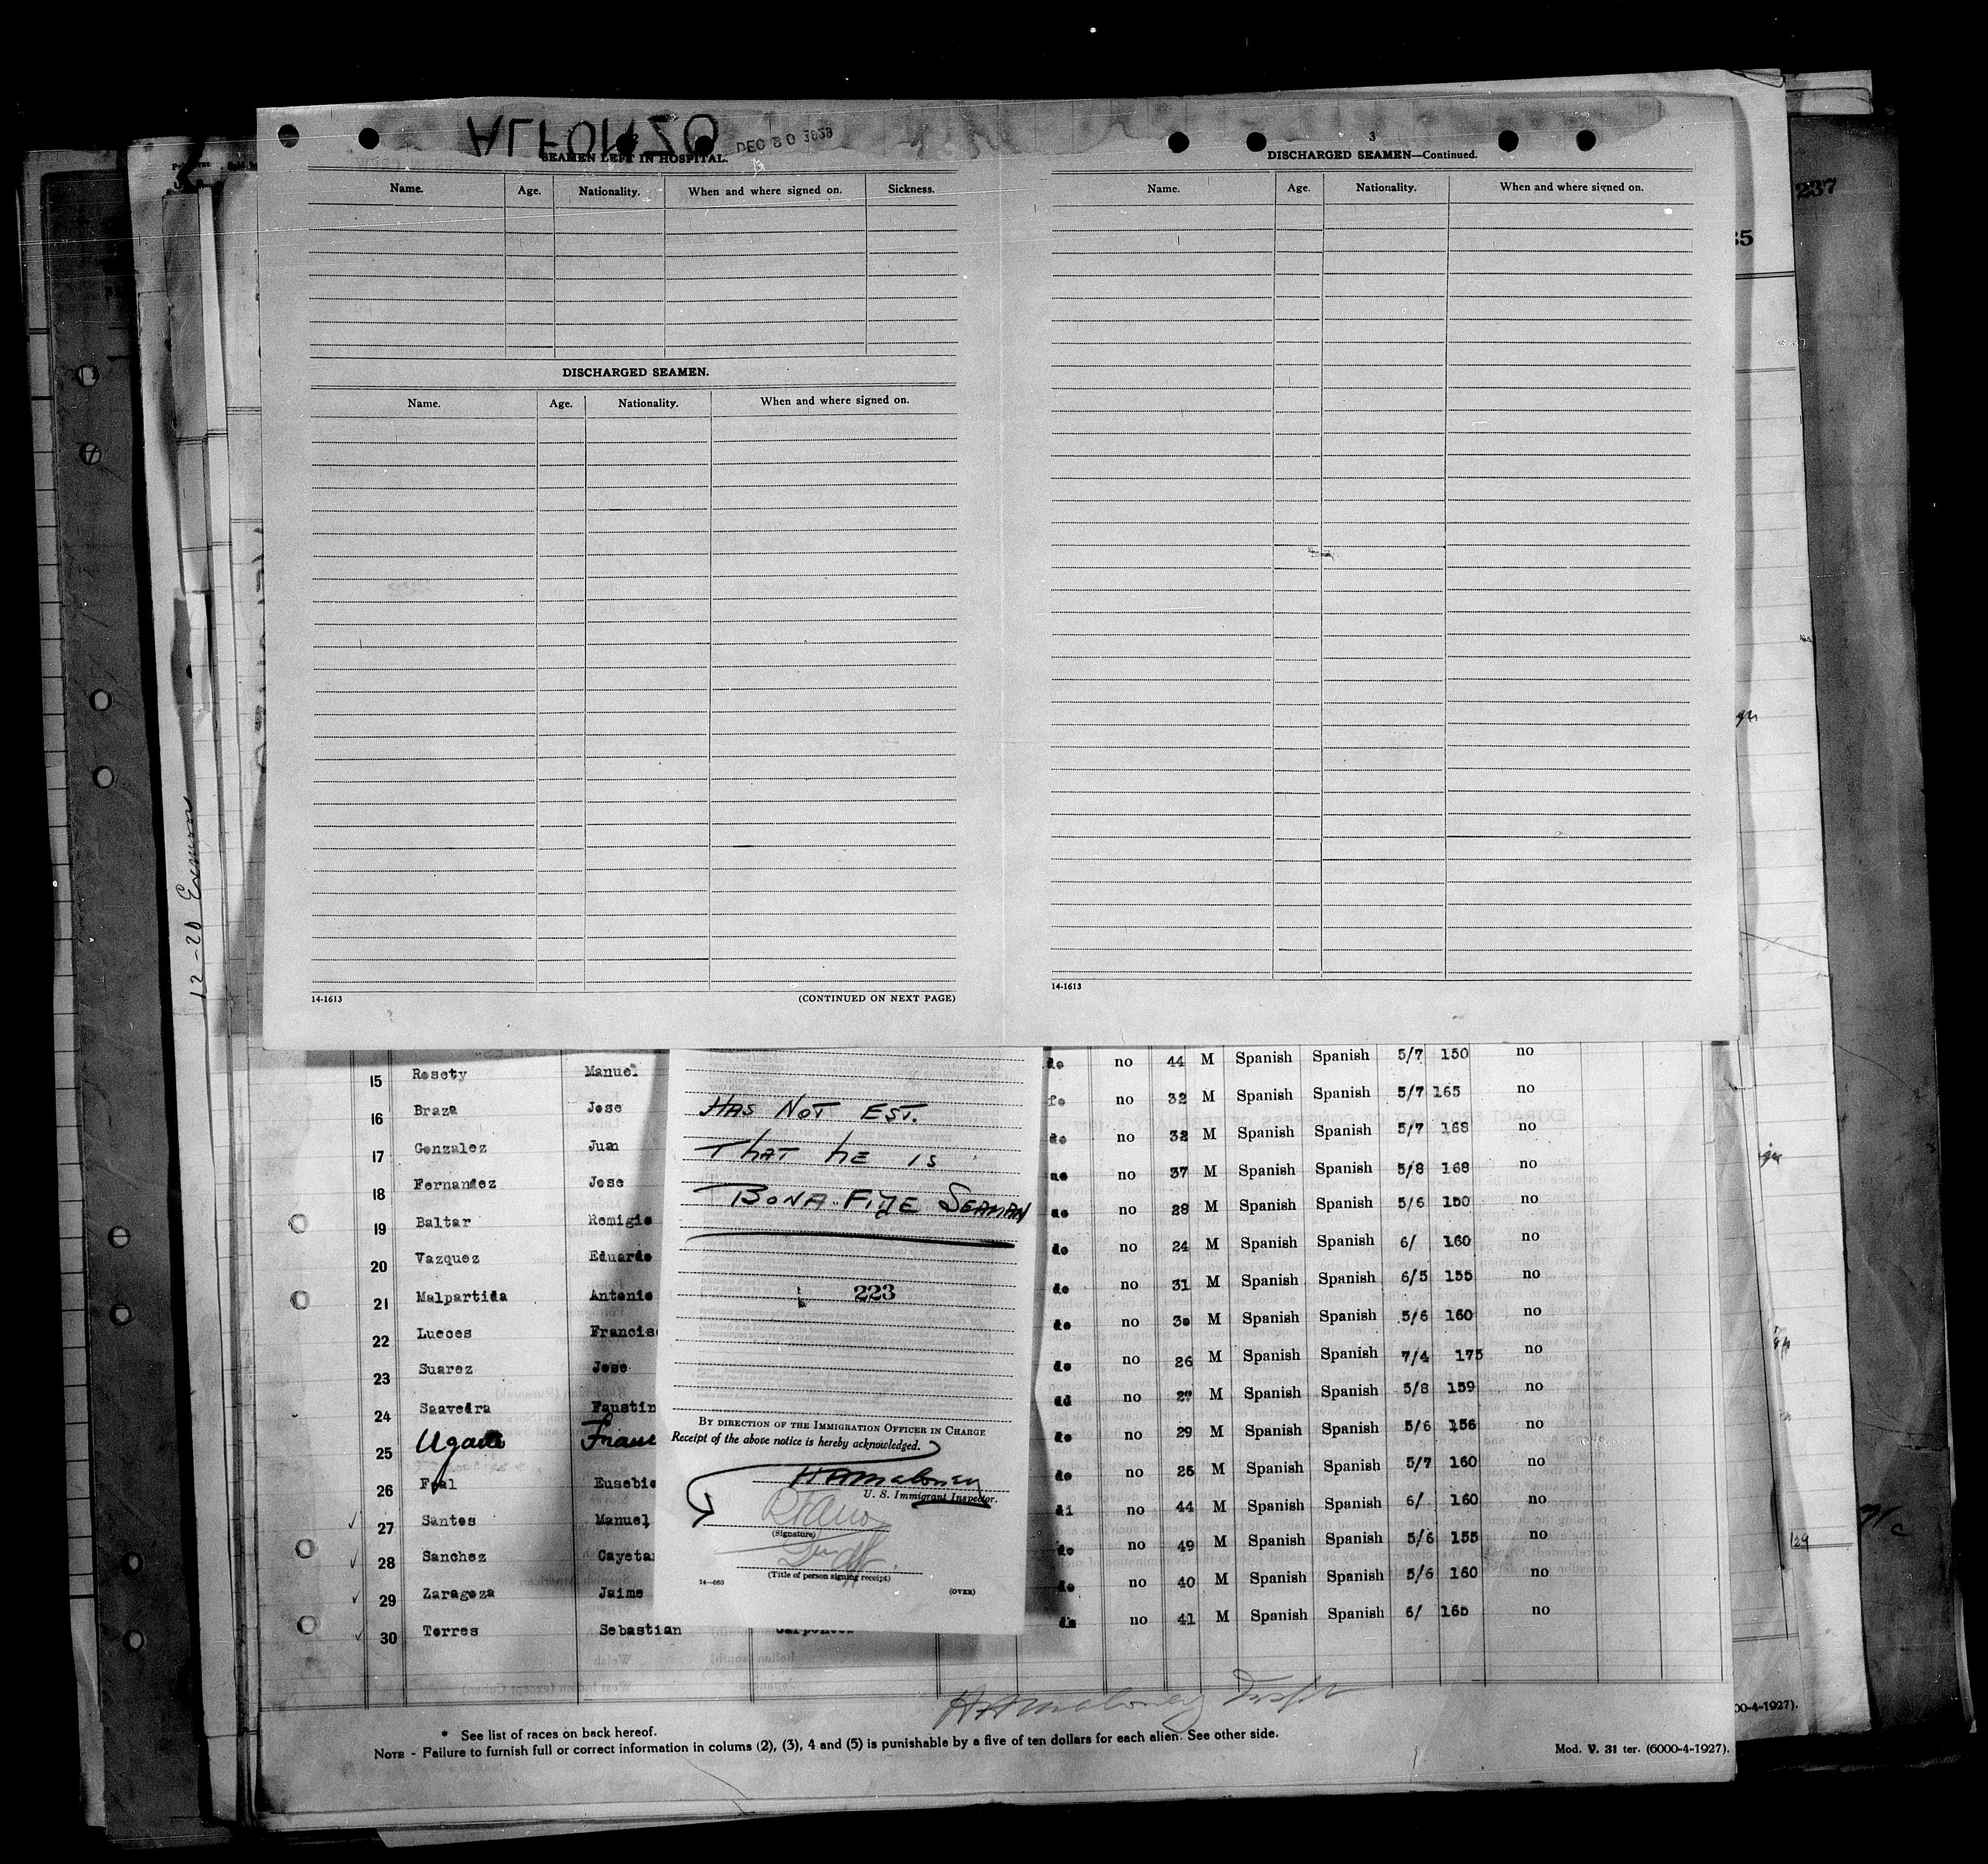 ALFONZO
DEC 20 1929
SEAMEN LEFT IN HOSPITAL.
Name. Age. Nationality. When and where signed on. Sickness.
DISCHARGED SEAMEN.
Name. Age. Nationality. When and where signed on.
14-1613 (CONTINUED ON NEXT PAGE)
3
DISCHARGED SEAMEN—Continued.
Name. Age. Nationality. When and where signed on.
14-1613
237
35
12-20
no 44 M Spanish Spanish 5/7 150 no
15 Rosety Manuel no 32 M Spanish Spanish 5/7 165 no
16 Braza Jose do no 32 M Spanish Spanish 5/7 168 no
17 Gonzalez Juan no 37 M Spanish Spanish 5/8 168 no
18 Fernandez Jose no 28 M Spanish Spanish 5/6 150 no
19 Baltar Remigio do no 24 M Spanish Spanish 6/ 160 no
20 Vazquez Eduardo do no 31 M Spanish Spanish 6/5 155 no
21 Malpartida Antonio do no 30 M Spanish Spanish 5/6 160 no
22 Lueces Francisc do no 26 M Spanish Spanish 7/4 175 no
23 Suarez Jose no 27 M Spanish Spanish 5/8 159 no
24 Saavedra Faustin do no 29 M Spanish Spanish 5/6 156 no
25 Ugarte Franc do no 25 M Spanish Spanish 5/7 160 no
26 Feal Eusebio di no 44 M Spanish Spanish 6/ 160 no
27 Santos Manuel do no 49 M Spanish Spanish 5/6 155 no
28 Sanchez Cayetan do no 40 M Spanish Spanish 5/6 160 no
29 Zaragoza Jaime no 41 M Spanish Spanish 6/ 165 no
30 Torres Sebastian Carpenter
HAS NOT EST.
THAT HE IS
BONA-FIDE SEAMAN
223
BY DIRECTION OF THE IMMIGRATION OFFICER IN CHARGE
Receipt of the above notice is hereby acknowledged.
HAMaloney
U. S. Immigrant Inspector.
(Signature)
(Title of person signing receipt)
14—660 (OVER)
HAMaloney Inspr
* See list of races on back hereof.
NOTE - Failure to furnish full or correct information in colums (2), (3), 4 and (5) is punishable by a five of ten dollars for each alien. See other side.
Mod. V. 31 ter. (6000-4-1927).
00-4-1927).